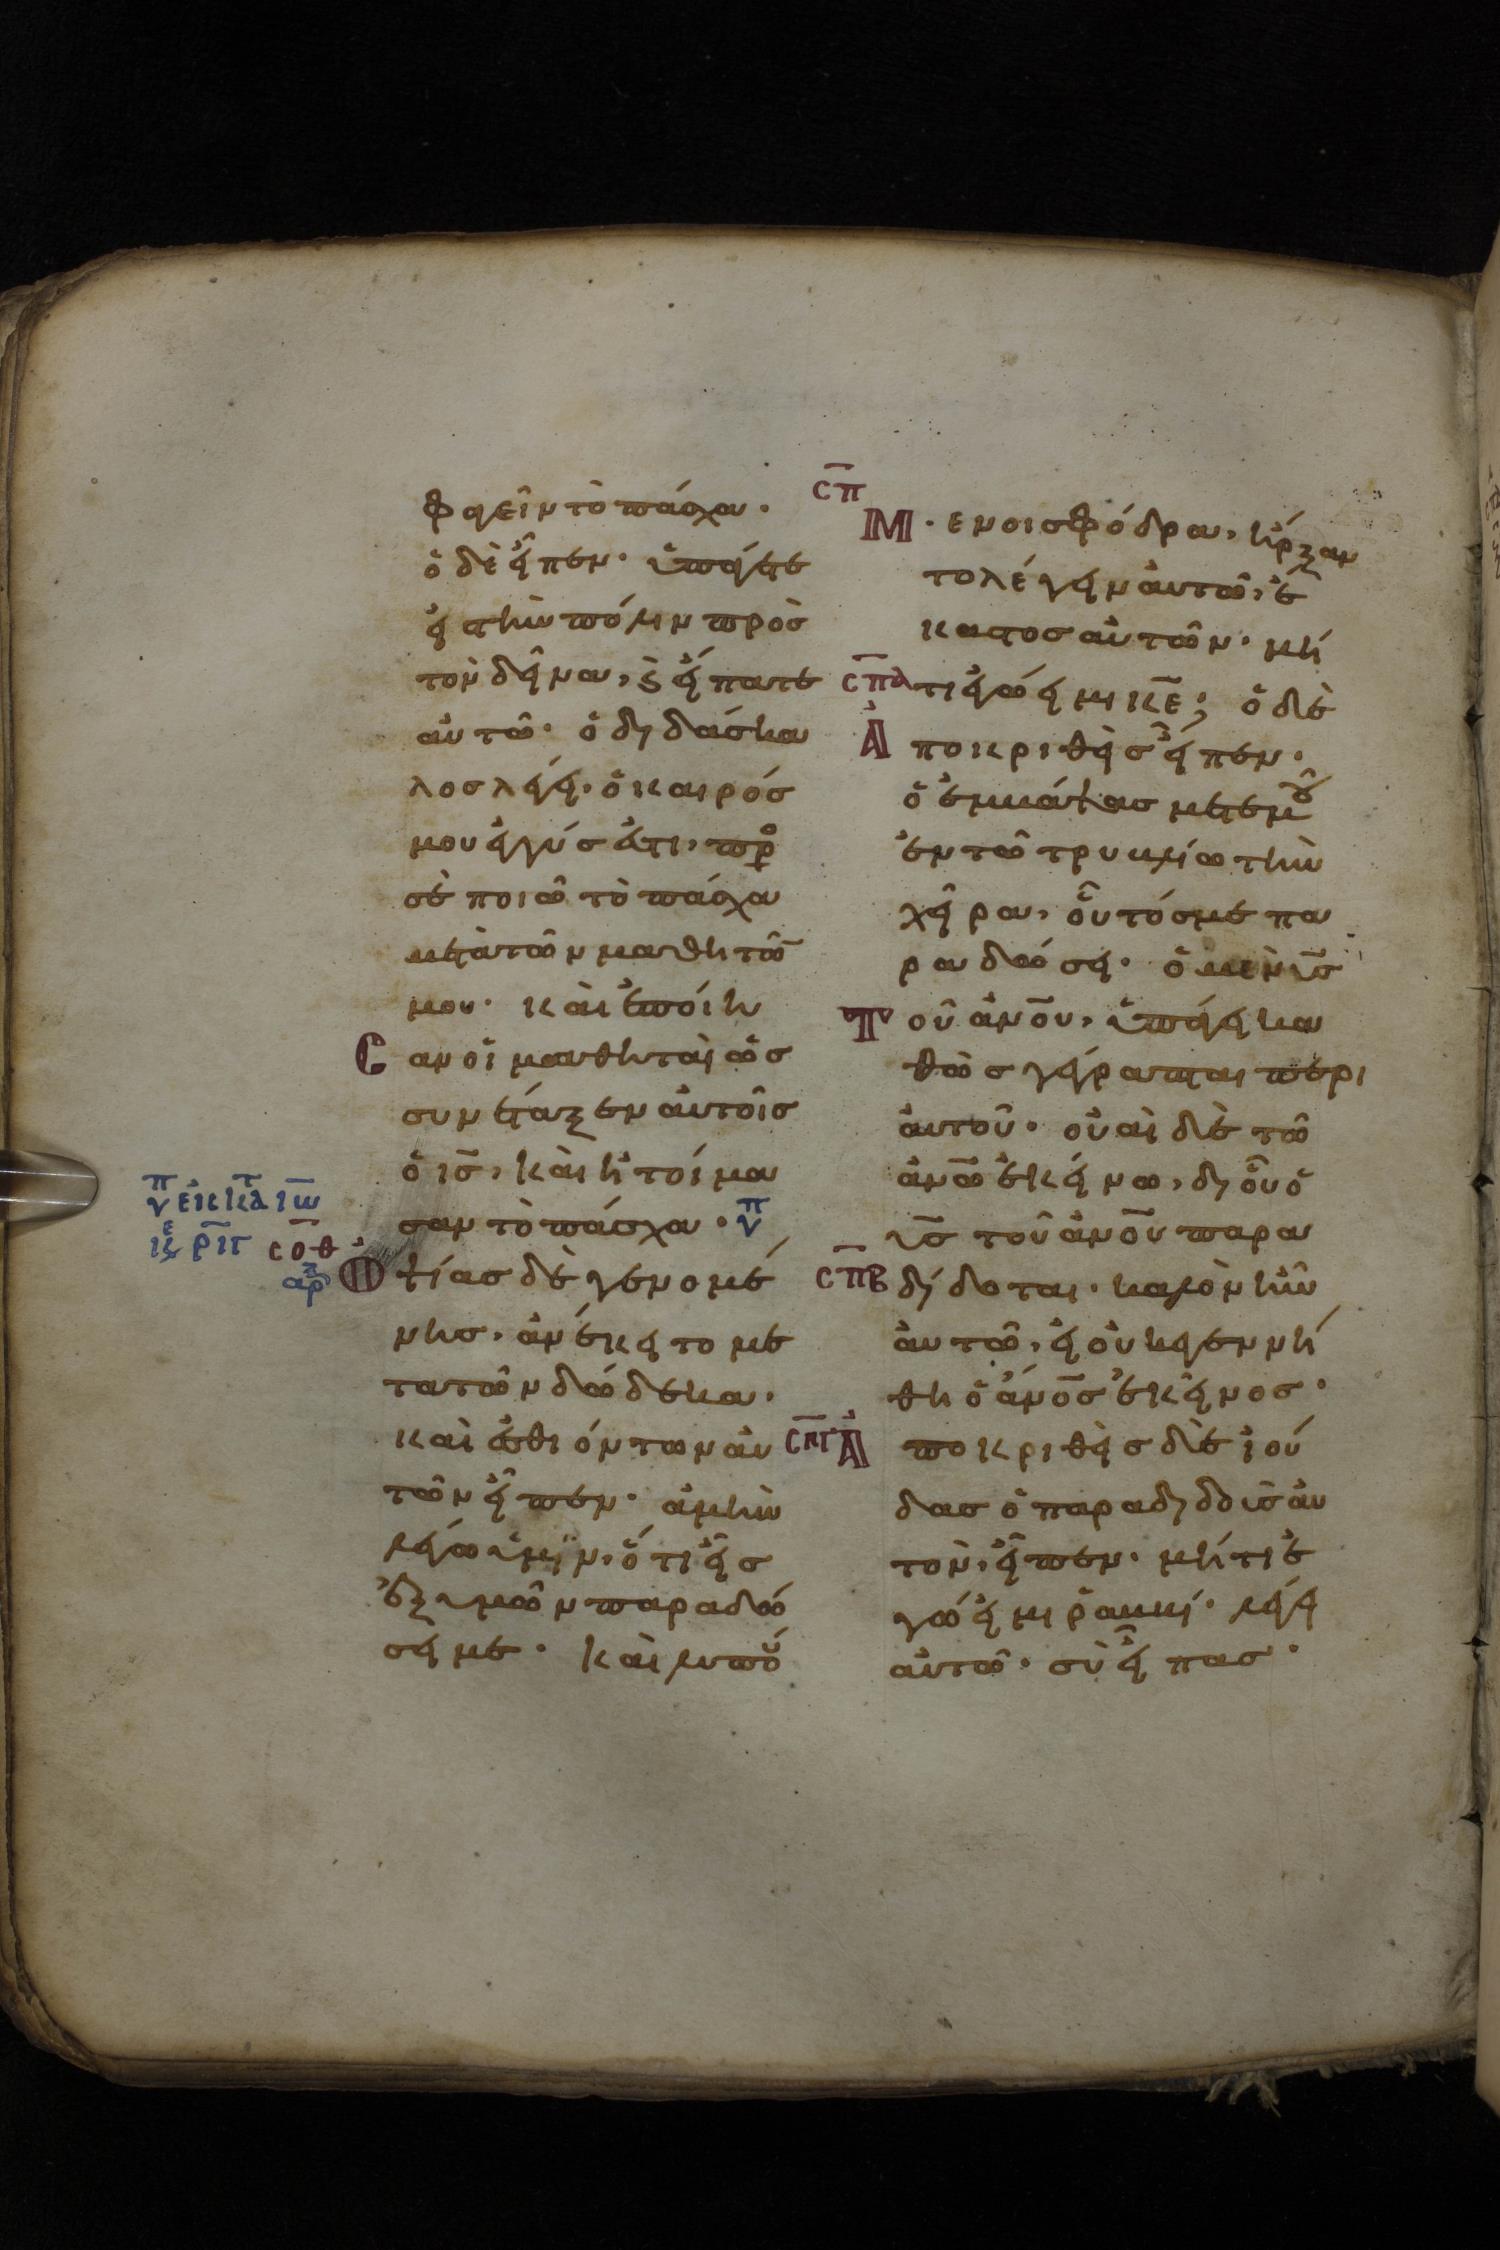 φαγεῖν τὸ πάσχα·
ὁ δὲ εἶπεν· ὑπάγετε
εἰς τὴν πόλιν πρὸς
τὸν δεῖνα, ϗ εἴπατε
αὐτῶ· ὁ διδάσκα
λος λέγει· ὁ καιρός
μου ἐγγύς ἐστι, πρ
σὲ ποιῶ τὸ πάσχα
μετὰ τῶν μαθητῶ̅
μου· καὶ ἐποίη
σαν οἱ μαθηταὶ ὡς
συνέταξεν αὐτοῖς
ὁ ι̅ς̅, καὶ ἡτοίμα
σαν τὸ πάσχα·
σ̅ο̅θ̅
Ὀψίας δὲ γενομέ
νης, ἀνέκειτο με
τὰ τῶν δώδεκα·
καὶ ἐσθιόντων αὐ
τῶν εἶπεν· ἀμὴν
λέγω ὑμῖν, ὅτι εἷς
ἐξ ὑμῶν παραδώ
σει με· καὶ λυπού
σ̅π̅
Μ·ενοι σφόδρα, ἤρξαν
το λέγειν αὐτῶ, ἕ
καστος αὐτῶν· μή
σ̅π̅α̅ τι ἐγώ εἰμι κ̅ε̅; ὁ δὲ
Ἀποκριθεὶς εἶπεν·
ὁ ἐμβάψας μετ' ἐμοῦ
ἐν τῶ τρυβλίω τὴν
χεῖρα, οὗτός με πα
ραδώσει· ὁ μὲν υ̅ς̅
Τοῦ ἀν̅ο̅υ̅, ὑπάγει κα
θὼς γέγραπται περὶ
αὐτοῦ· οὐαὶ δὲ τῶ
ἀν̅ω̅ ἐκείνω, δι' οὗ ὁ
υ̅ς̅ τοῦ ἀν̅ο̅υ̅ παρα
σ̅π̅β̅ δίδοται· καλὸν ἦν
αὐτῶ, εἰ οὐκ ἐγεννή
θη ὁ ἄν̅ο̅ς̅ ἐκεῖνος·
σ̅π̅γ̅ Ἀποκριθεὶς δὲ ἰού
δας ὁ παραδιδοὺς αὐ
τὸν, εἶπεν· μήτι ἐ
γώ εἰμι ῥαββί· λέγει
αὐτῶ· σὺ εἶπας·